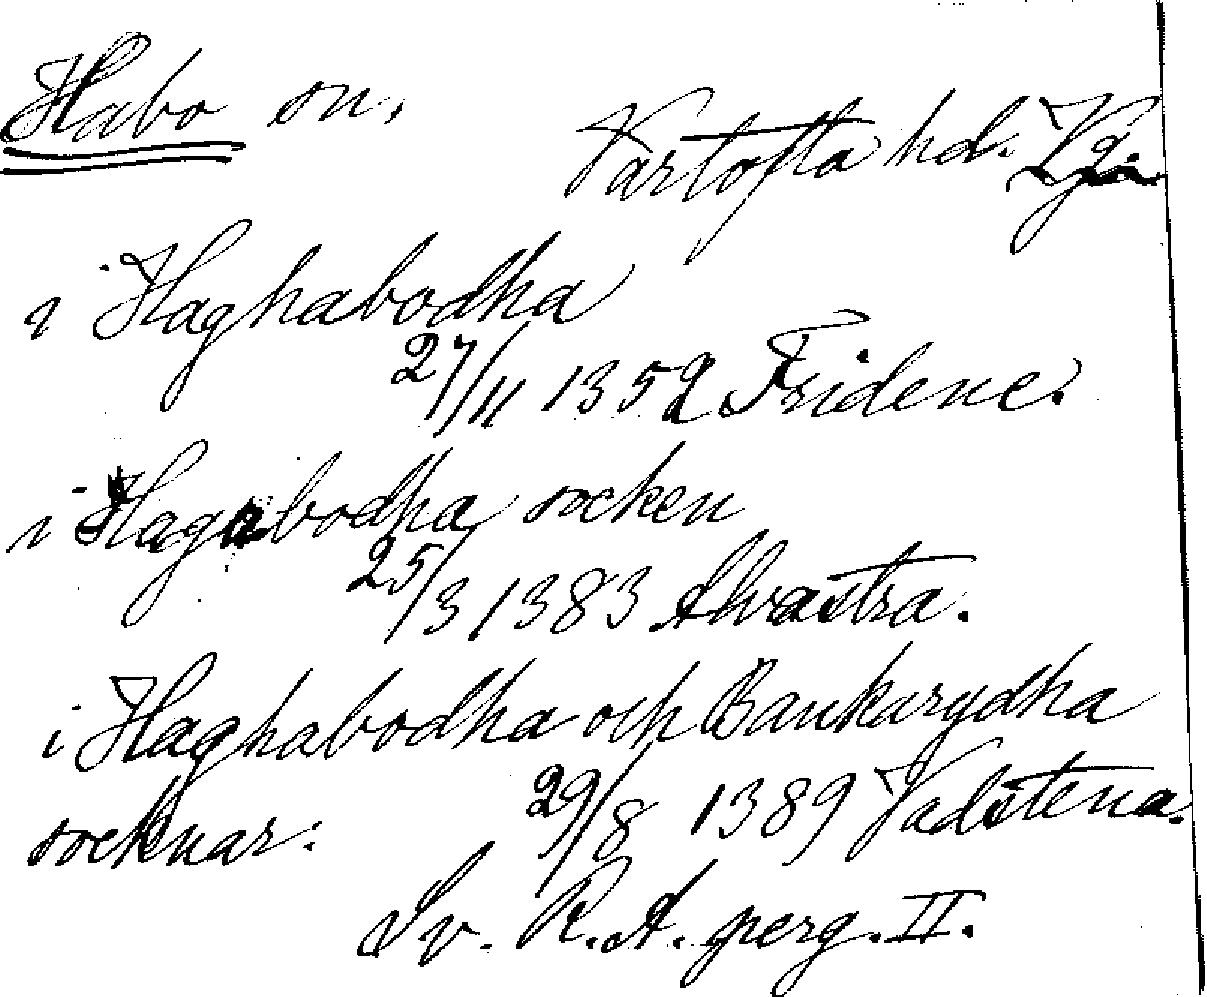 Habo sn.
Vartofta hd. Vg.
i Haghabodha
27/11 1352 Fridene.
i Hagabodha socken
25/3 1383 Alvastra.
i Haghabodha och Bankarydha
socknar: 29/8 1389 Vadstena.
Sv. R. A. perg. II.